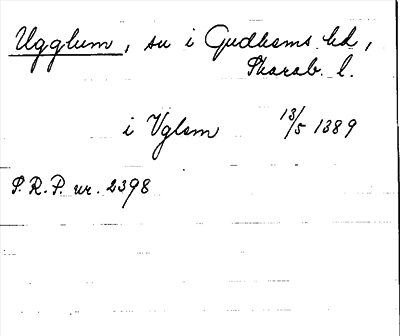 Ugglum, sn i Gudhems hd,
Skarab. l.
i Vglom 13/5 1389
S.R.P. nr. 2398